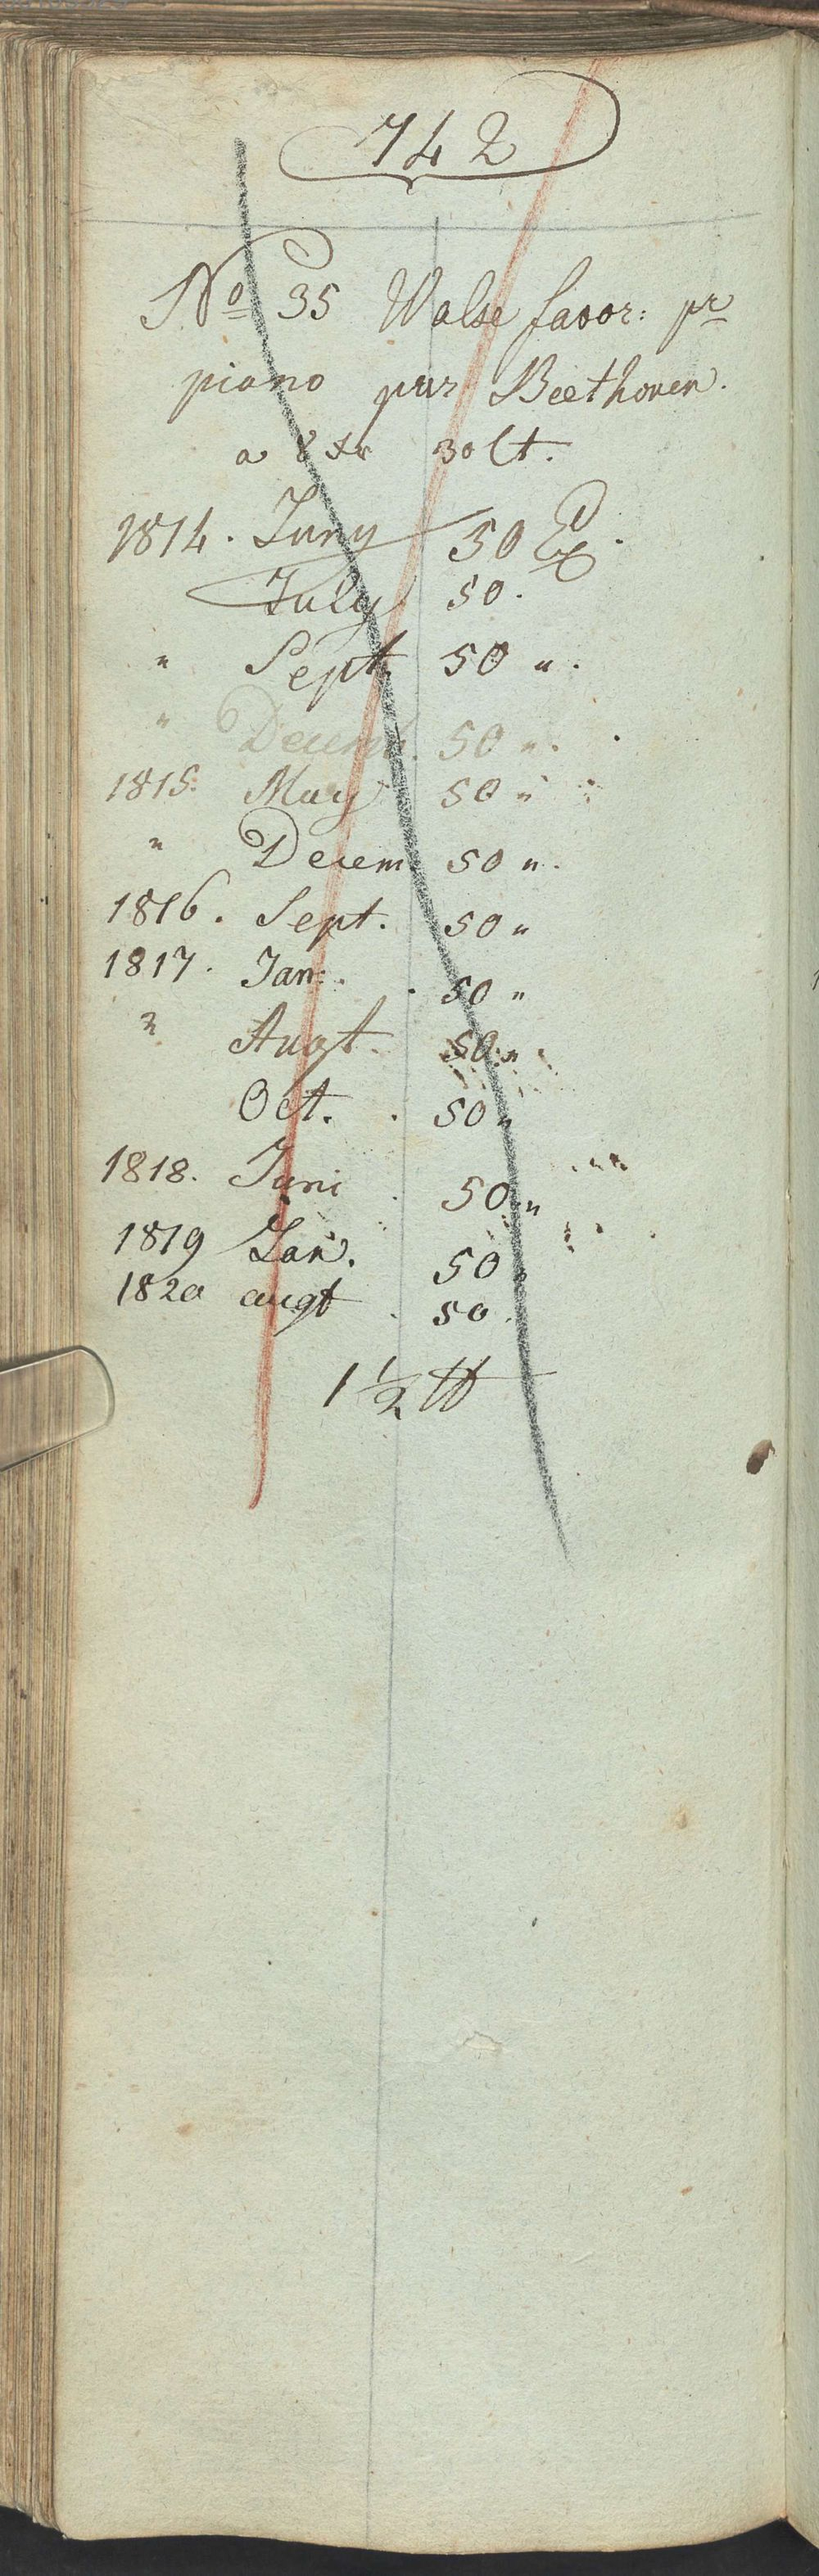 742
No 35 Walse favor: pr
piano par Beethoven.
a 8 xr 30 lt.
1814. Juny 50 Ex.
July 50.
" Sept. 50 ".
" Decemb. 50 ".
1815. May 50 "
" Decem. 50 ".
1816. Sept. 50 "
1817. Jan: . 50 "
" Augt. 50 "
Oct. . 50 "
1818. Juni . 50 "
1819 Jan. 50 "
1820 augt . 50.
1 1/2 tt